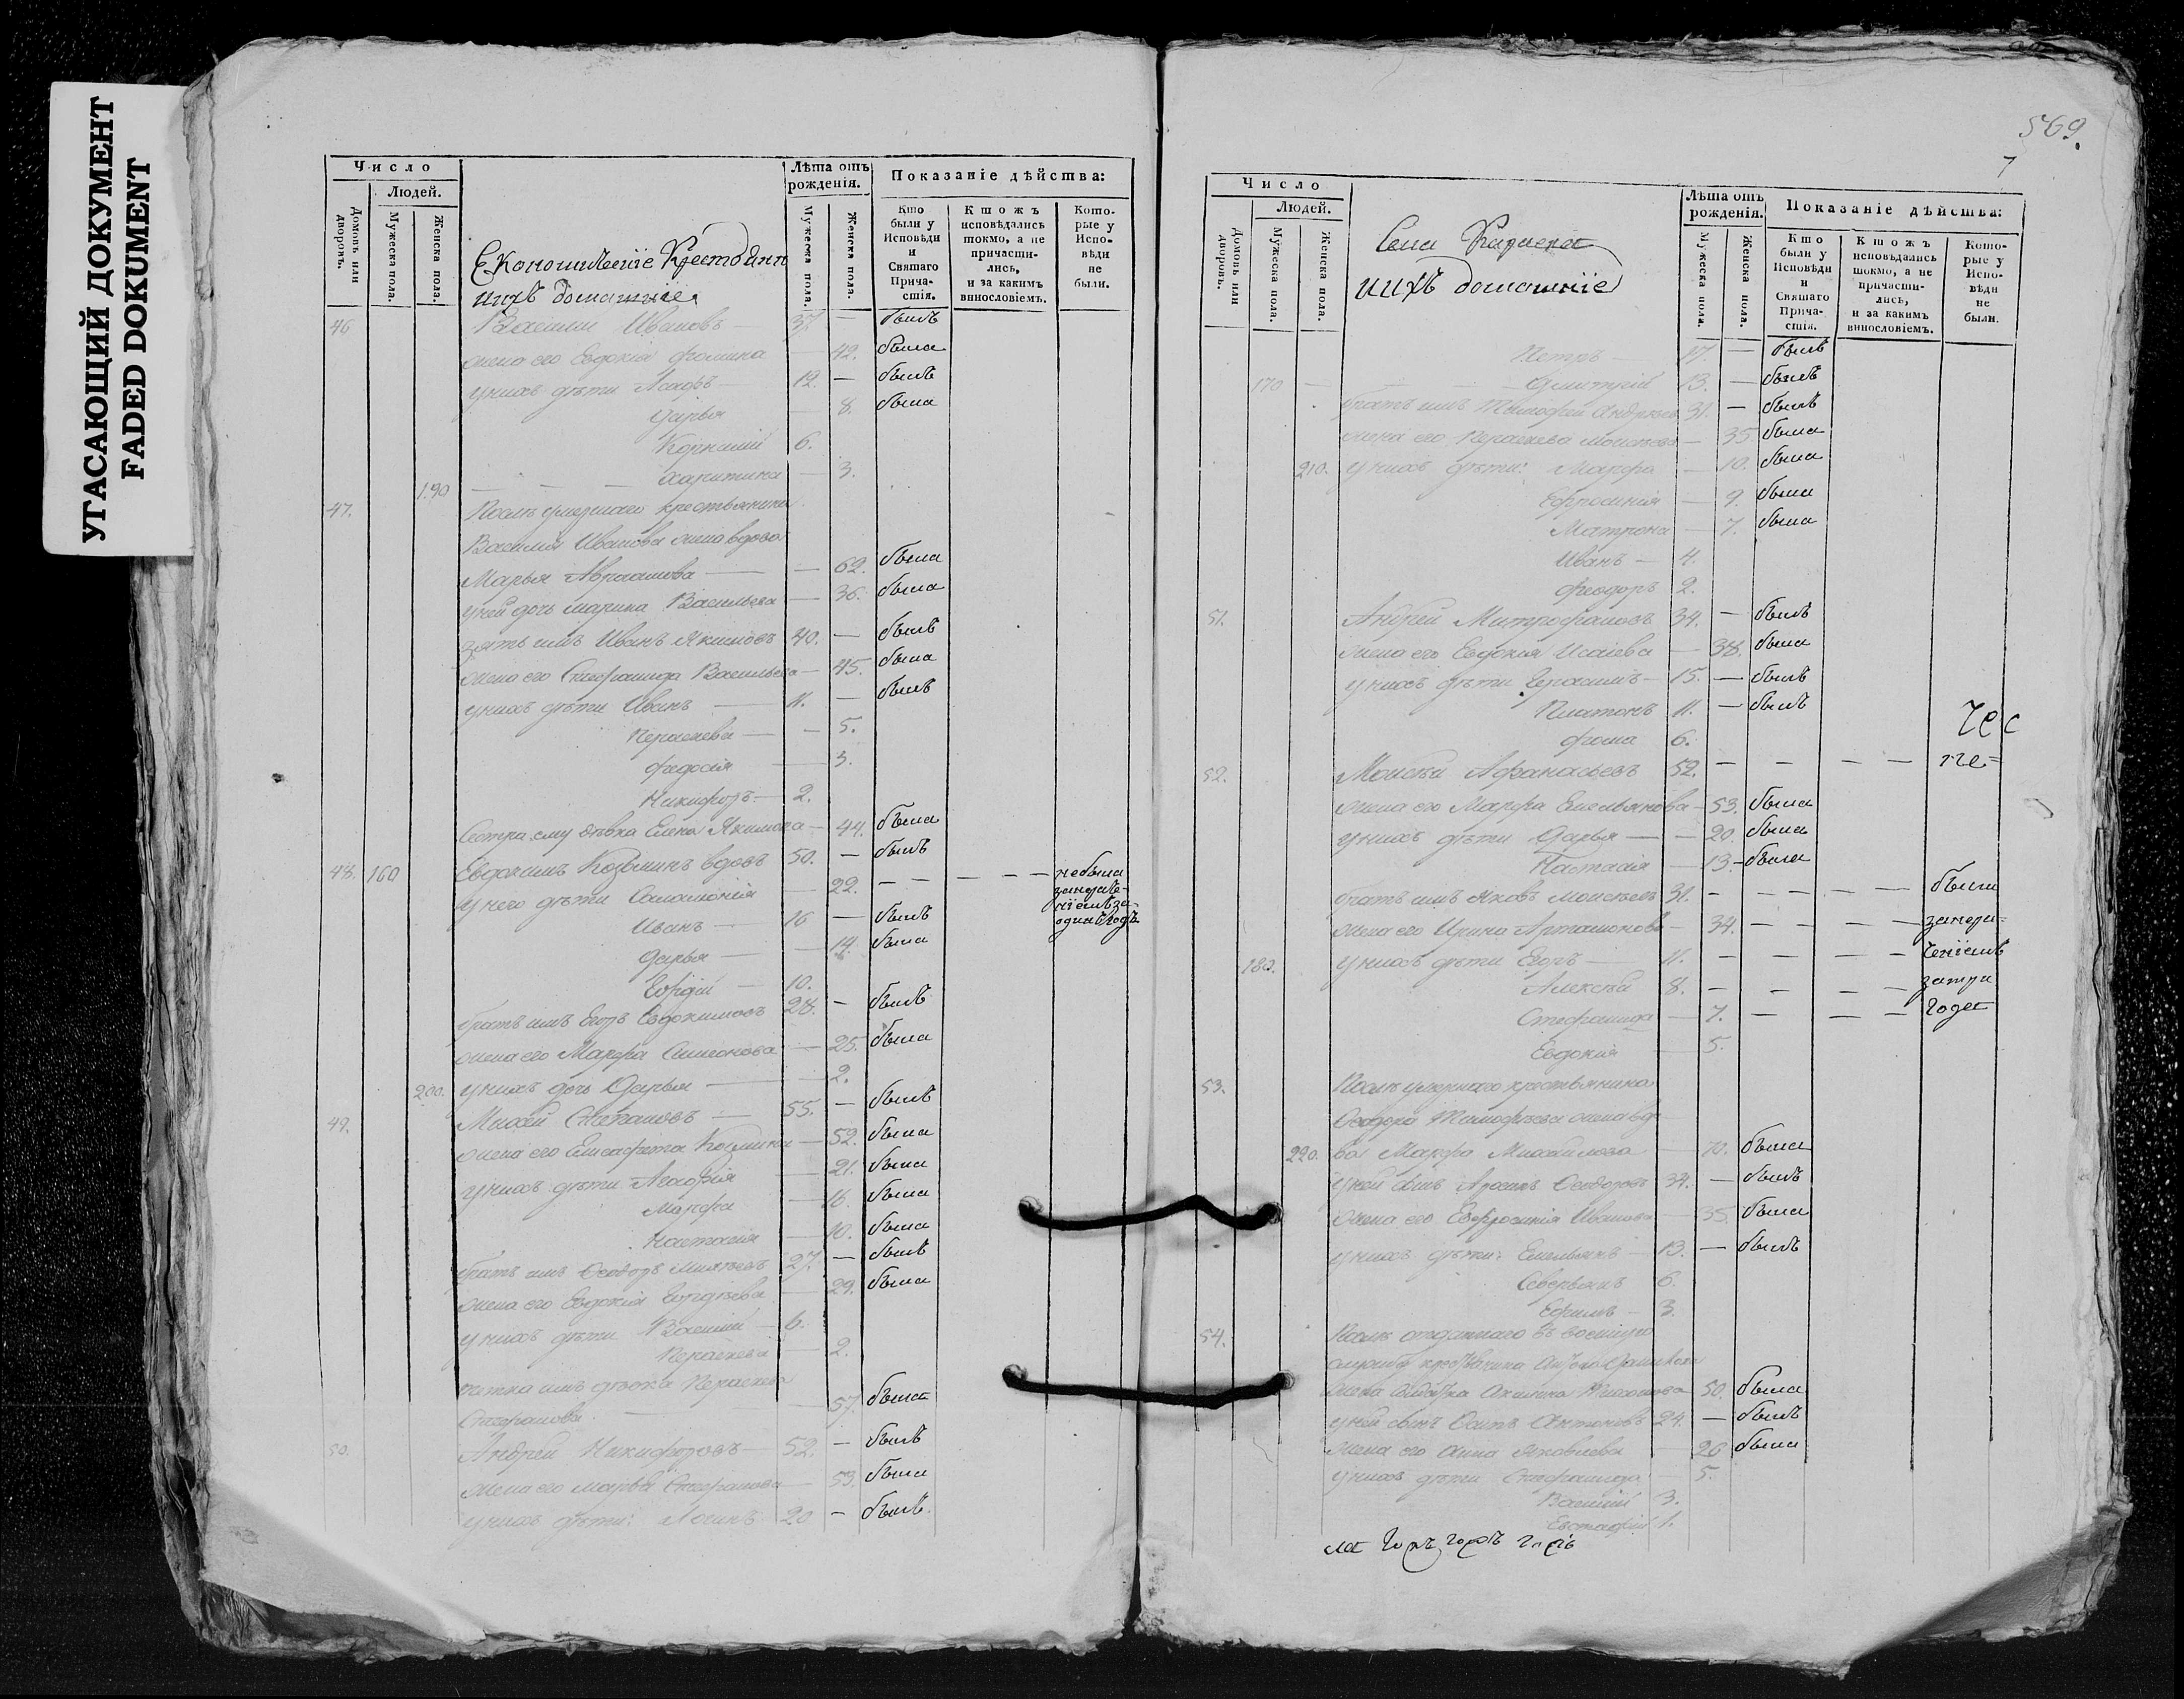 УГАСАЮЩИЙ ДОКУМЕНТ
FADED DOKUMENT
Число
Людей.
Домовъ или дворовъ.
Мужеска пола.
Женска пола.
Лѣта отъ рожденія.
Мужеска пола.
Женска пола.
Показаніе дѣйства:
Кто были у Исповѣди и Святаго Причастія.
Ктожъ исповѣдались токмо, а не причастились, и за какимъ винословіемъ.
Которые у Исповѣди не были.
Економическіе Крестьянѣ
ихъ домашніе
46 Василии Ивановъ 37. — былъ
жена его Евдокія Фомина — 42. была
у нихъ дѣти 12. — былъ
Дарья 8. была
Корнилий 6.
190 Харитина — 3.
47. Послѣ умершаго крестьянина
Василия Иванова жена вдова
Марья Авраамова — 62. была
у ней дочь Марина Васильева — 36. была
зять имъ Иванъ Якимовъ 40. — былъ
жена его Стефанида Васильева — 45. была
у нихъ дѣти Иванъ 11. — былъ
Параскева — 5.
Федосія — 3.
Никифоръ 2.
Сестра ему дѣвка Елена Якимова — 44. была
48. 160 Евдокимъ Козьминъ вдовъ 50. — былъ
у него дѣти Соломонія — 22. — — — — не была
за нераде-
ніемъ за
одинъ годъ
Иванъ 16 — былъ
Дарья — 14. была
10.
братъ имъ Егоръ Евдокимовъ 28. — былъ
жена его Марфа Симеонова — 25. была
200. у нихъ дочь Дарья — 2.
49. Михей Степановъ 55. — былъ
жена его Елисафета Козмина — 52. была
у нихъ дѣти Агафія — 21. была
Марфа — 16. была
Настасія — 10. была
братъ имъ Феодоръ Михѣевъ 27. — былъ
жена его Евдокія — 29. была
у нихъ дѣти Василий 6.
Параскева — 2.
тетка имъ дѣвка Параскева
Стефанова — 57. была
50. Андрей Никифоровъ 52. — былъ
жена его Марфа Стефанова — 53. была
у нихъ дѣти: Логинъ 20 — былъ.
569.
7
Число
Людей.
Домовъ или дворовъ.
Мужеска пола.
Женска пола.
Лѣта отъ рожденія.
Мужеска пола.
Женска пола.
Показаніе дѣйства:
Кто были у Исповѣди и Святаго Причастія.
Ктожъ исповѣдались токмо, а не причастились, и за какимъ винословіемъ.
Которые у Исповѣди не были.
Села
ихъ домашніе
Петръ 17. — былъ
170 — Димитрій 13. — былъ
братъ имъ Тимофей Андреевъ 31. — былъ
жена его Параскева Моисеева — 35 была
210. у нихъ дѣти: Марфа — 10. была
Ефросинія — 9. была
Матрона — 7. была
Иванъ 4.
Феодоръ 2.
51. Андрей Митрофановъ 34. — былъ
жена его Евдокия Исаева — 38. была
у нихъ дѣти Герасимъ 15. — былъ
Платонъ 11. — былъ
Фома 6.
52. Моисѣй Афанасьевъ 52. — — — — не=
жена его Марфа Емельянова — 53. была
у нихъ дѣти Дарья — 20. была
Настасія — 13. была
братъ имъ Яковъ Моисеевъ 31. — — — — были
жена его Ирина Артамонова — 34. — — — — за нера=
180. у нихъ дѣти Егоръ 11. — — — —
Алексѣй 8. — — — — за три
Стефанида — 7. — — — года
Евдокия — 5.
53. Послѣ умершаго крестьянина
Феодора Тимофѣева жена вдо
220. ва Марфа Михайлова — 70. была
у ней сынъ Феодоровъ 34. — былъ
жена его Евфросинія Иванова — 35. была
у нихъ дѣти: Емельянъ 13. — былъ
Северьянъ 6.
Ефимъ 3.
54. Послѣ отданнаго въ военную
службу крестьянина
жена солдатка — 50. была
у ней сынъ Осипъ Антоновъ 24. — былъ
жена его Анна Яковлева — 26 была
у нихъ дѣти Стефанида — 5.
Василий 3.
Евстафій 1.